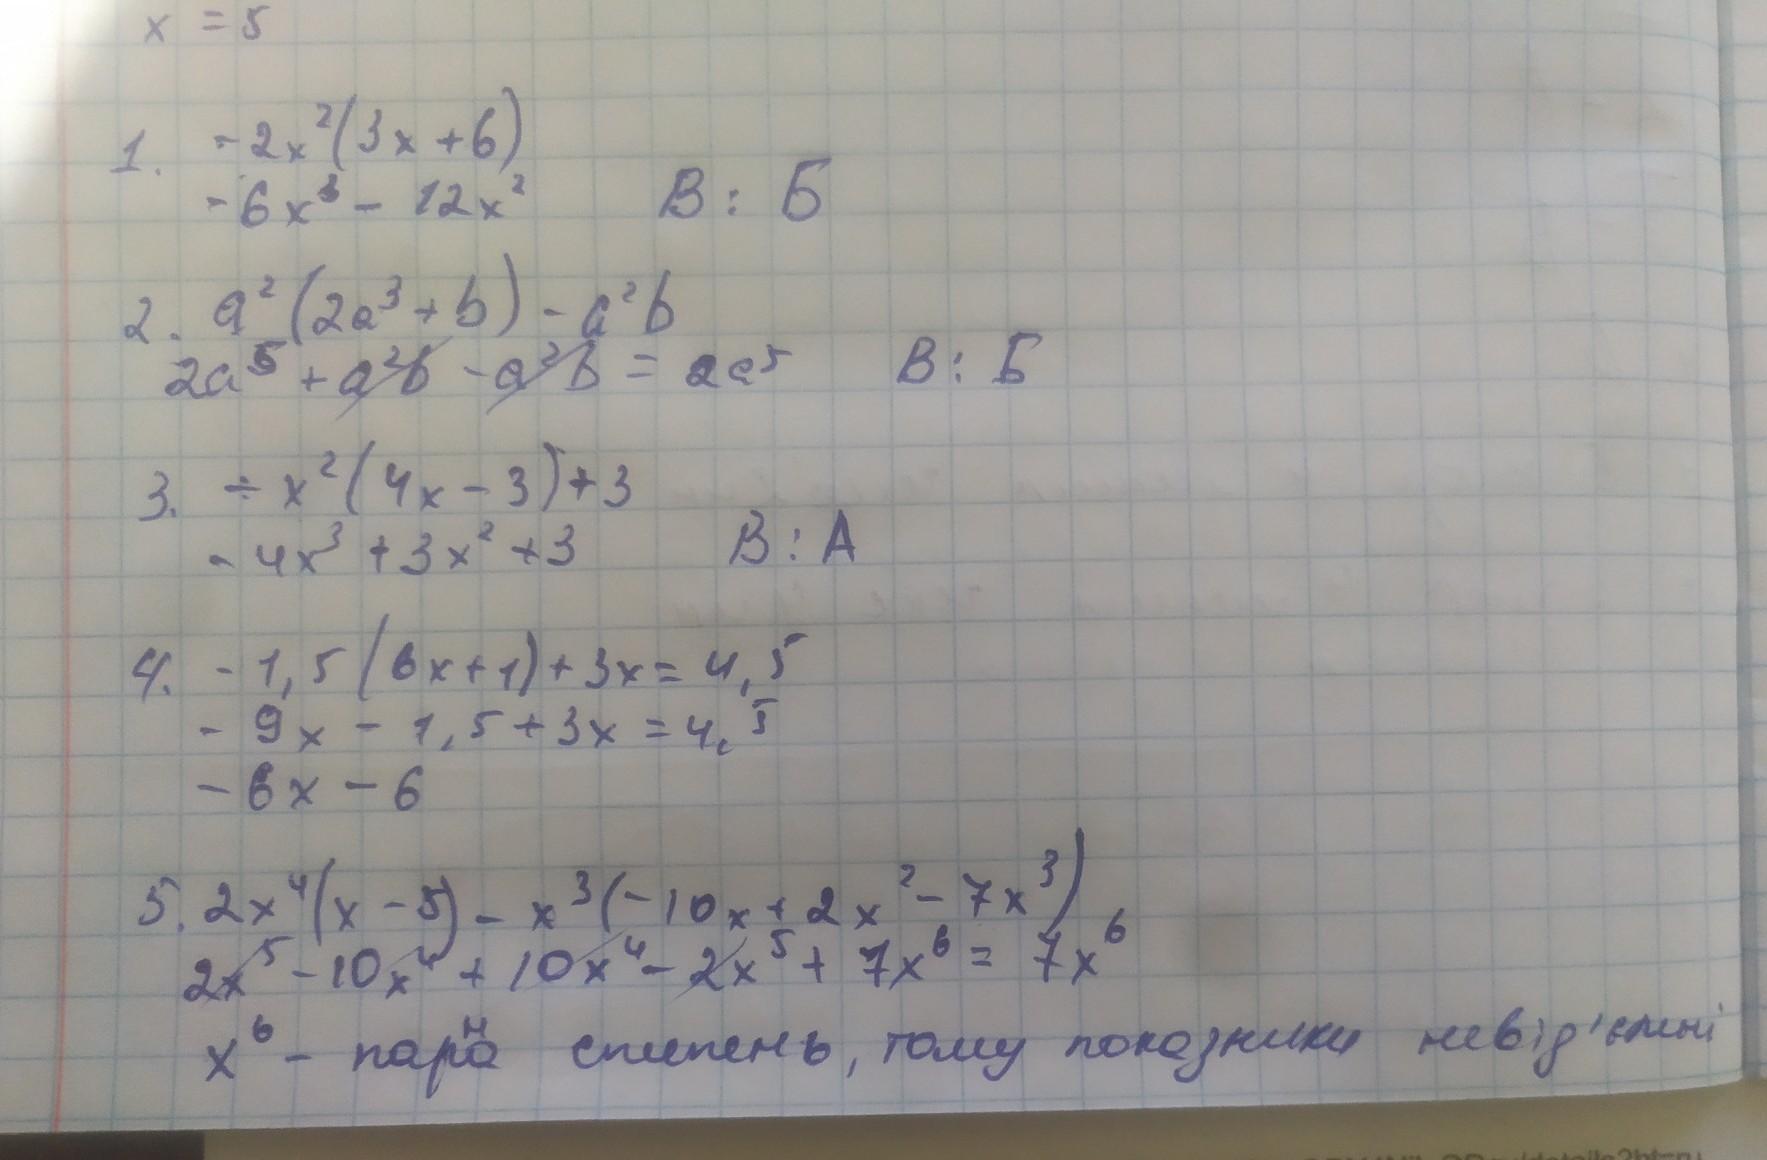 x = 5
1. -2x²(3x+6)
-6x³ - 12x² В: Б
2. a²(2a³+b) - a²b
2a⁵ + a²b - a²b = 2a⁵ В: Б
3. - x²(4x-3)+3
- 4x³ + 3x² + 3 В: А
4. - 1,5(6x+1)+3x = 4,5
- 9x - 1,5 + 3x = 4,5
- 6x - 6
5. 2x⁴(x-5) - x³(-10x+2x²-7x³)
2x⁵ - 10x⁴ + 10x⁴ - 2x⁵ + 7x⁶ = 7x⁶
x⁶ - парна степень, тому показники невід'ємні